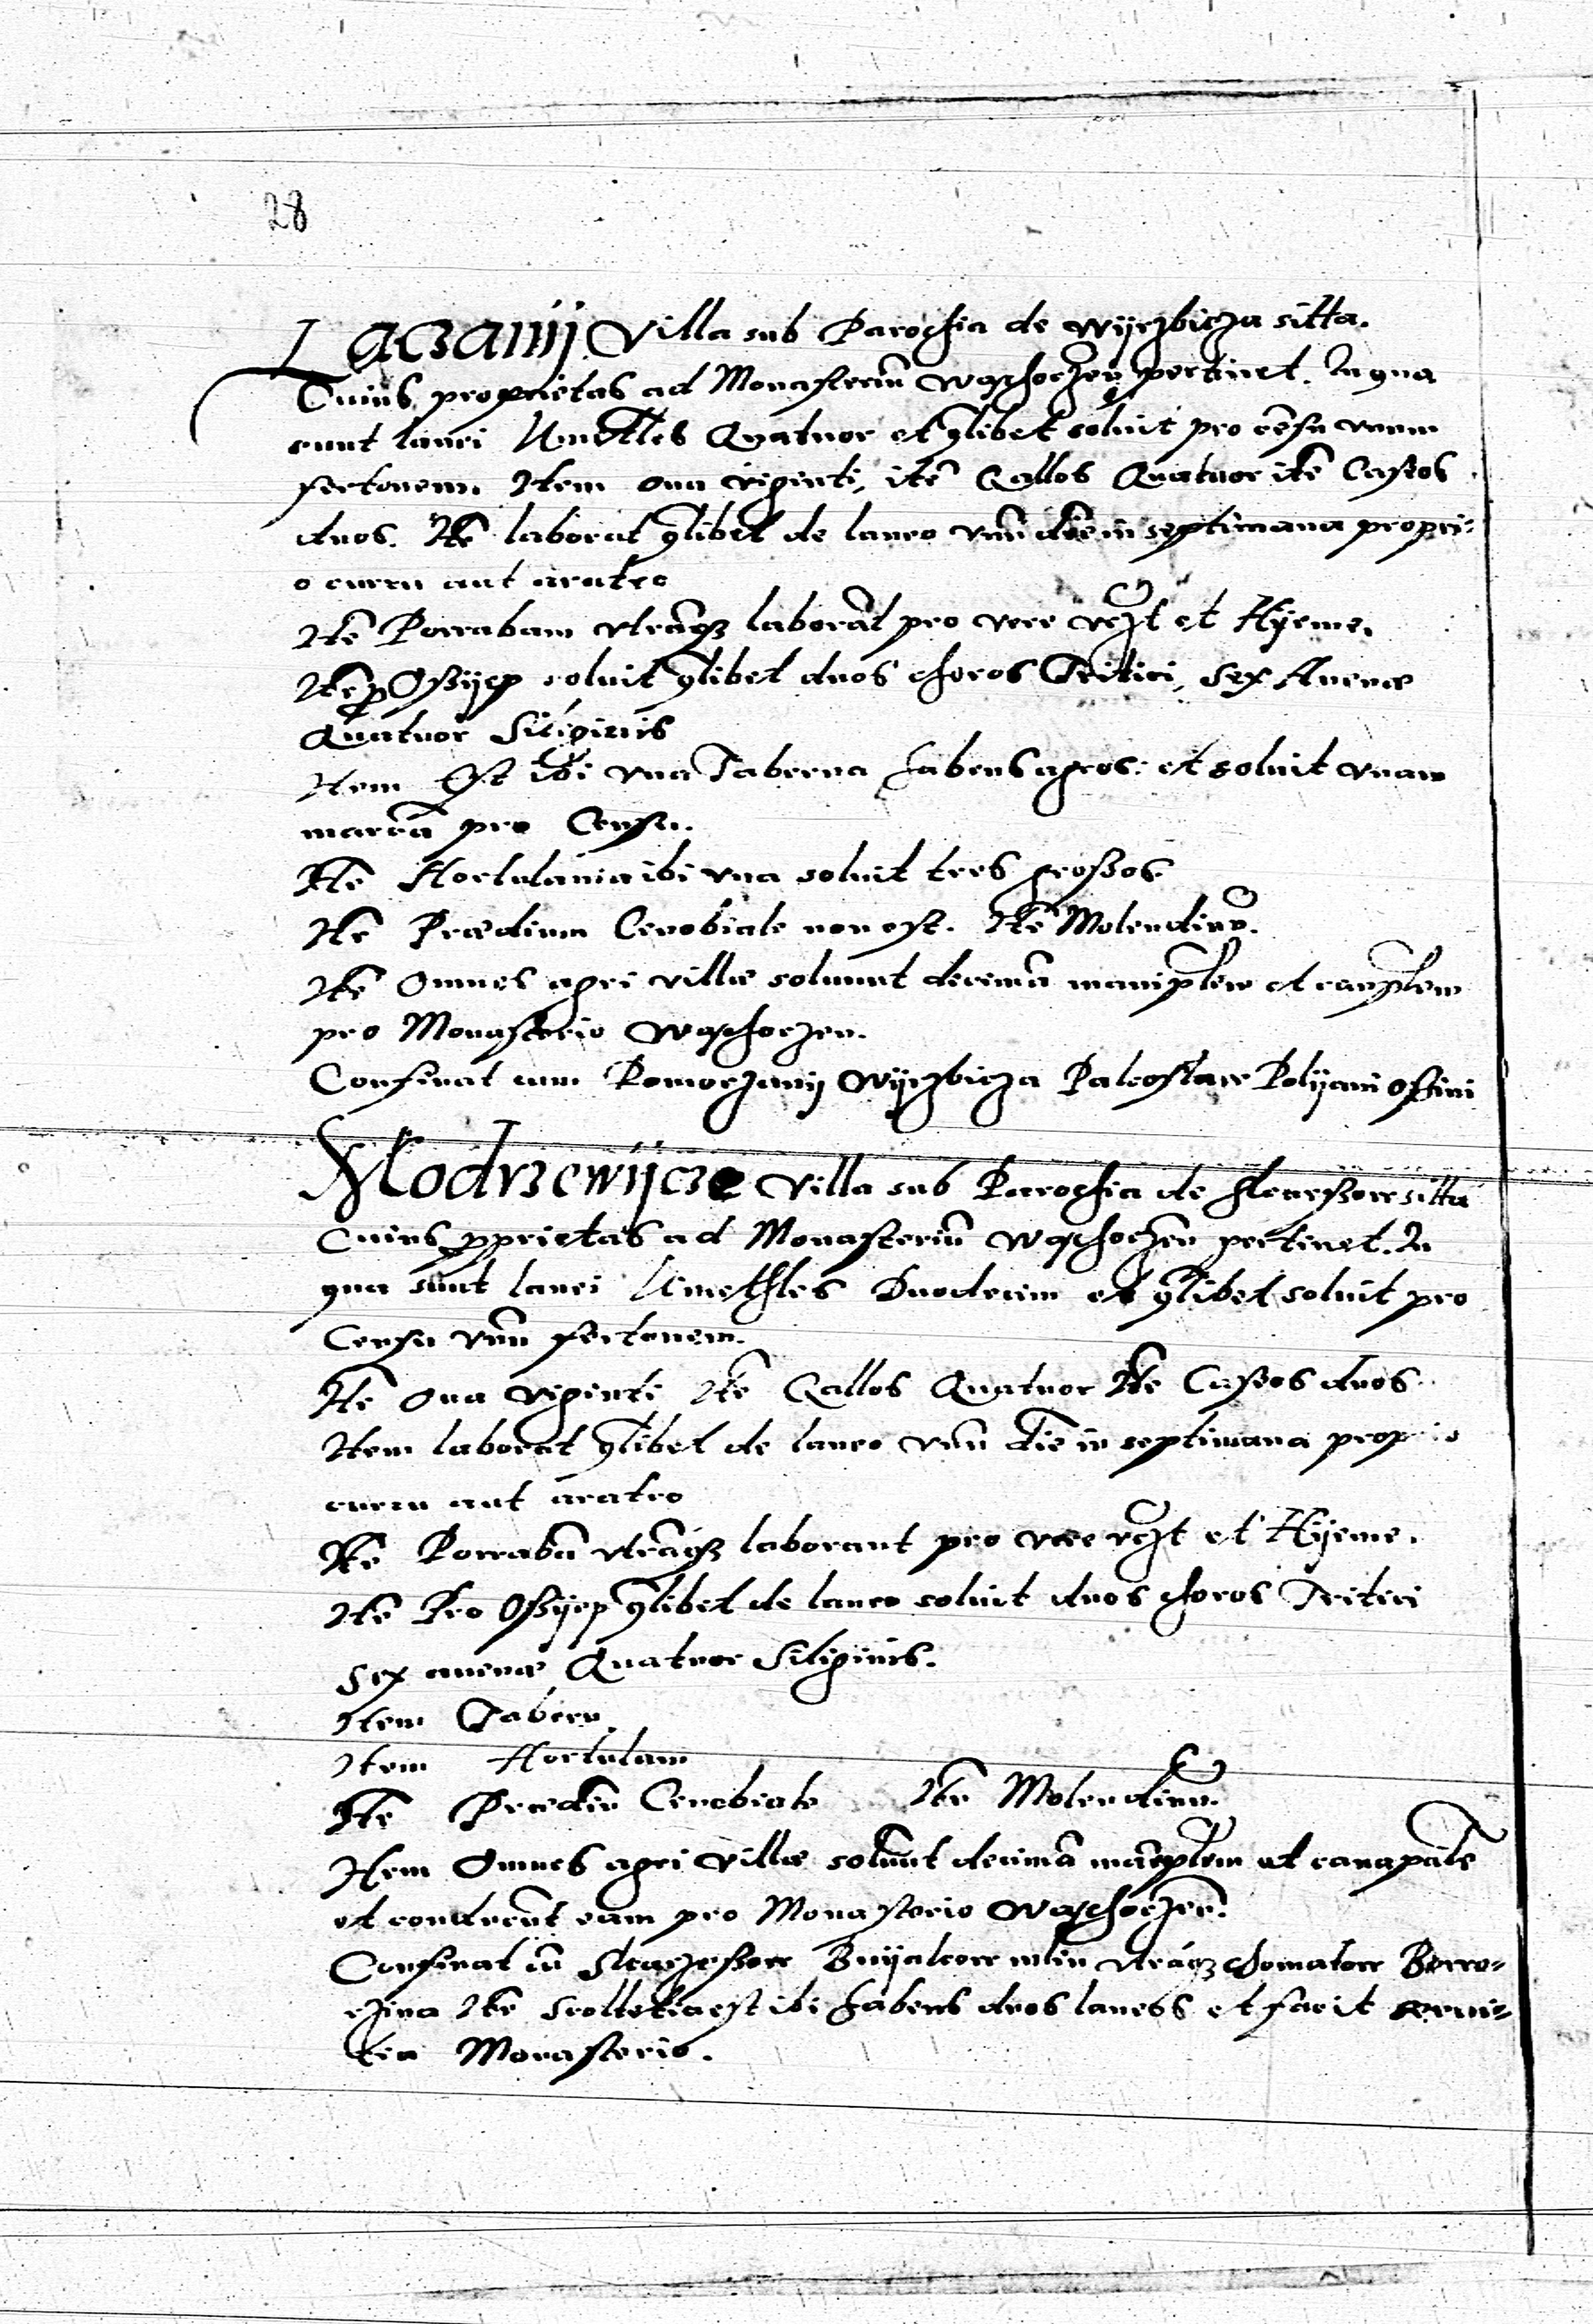 28
Laczanij Villa sub Parochia de Wijerzbicza sitta.
Cuius proprietas ad Monasteriũ Wąchoczeñ pertinet. In qua
sunt lanei Kmethles Quatuor et q̃libet soluit pro cẽsu vnum
fertonem. Item oua viginti, itẽ Gallos Quatuor itẽ Caseos
duos. Itẽ laborat q̃libet de laneo vnũ diẽ in septimana propri=
o curru aut aratro
Itẽ Porrabam vtrãqz laborãt pro vere et Hÿeme.
Itẽ ꝓ Ossijep soluit q̃libet duos choros Tritici, sex Auenæ
Quatuor Siliginis
Item Est ibi vna Taberna habens agros: et soluit vnam
marcã pro Censu.
Itẽ Hortulania ibi vna soluit tres grossos
Itẽ Prædium Cenobiale non est. Itẽ Molendinũ.
Itẽ Omnes agri villæ soluunt decimã manipłem et canapłem
pro Monasterio Wąchoczen.
Confinat cum Pomorzanij Wijerzbicza Polijani Ossini
Modrzewijcze Villa sub Parochia de sitta
Cuius ꝓprietas ad Monasteriũ Wąchoczeñ pertinet. In
qua sunt lanei Kmethles Duodecim et q̃libet soluit pro
Censu vnũ fertonem.
Itẽ Oua viginti Itẽ Gallos Quatuor Itẽ Caseos duos
Item laborat q̃libet de laneo vnũ diẽ in septimana proprio
curru aut aratro
Itẽ Porrabã vtrãqz laborant pro vere et Hÿeme.
Itẽ Pro Ossijep q̃libet de laneo soluit duos choros Tritici
Sex auenæ Quatuor Siliginis.
Item Tabern
Item Hortulam
Itẽ Prædiũ Cenobiale Itẽ Molendinũ.
Item Omnes agri villæ soluũt decimã manipłem et canapałẽ
et conducũt eam pro Monasterio Wąchoczeñ.
Confinat cũ mlin vtrãqz Borro=
czina Itẽ Scoltetia est ibi habens duos laneos et facit serui=
tia Monasterio.